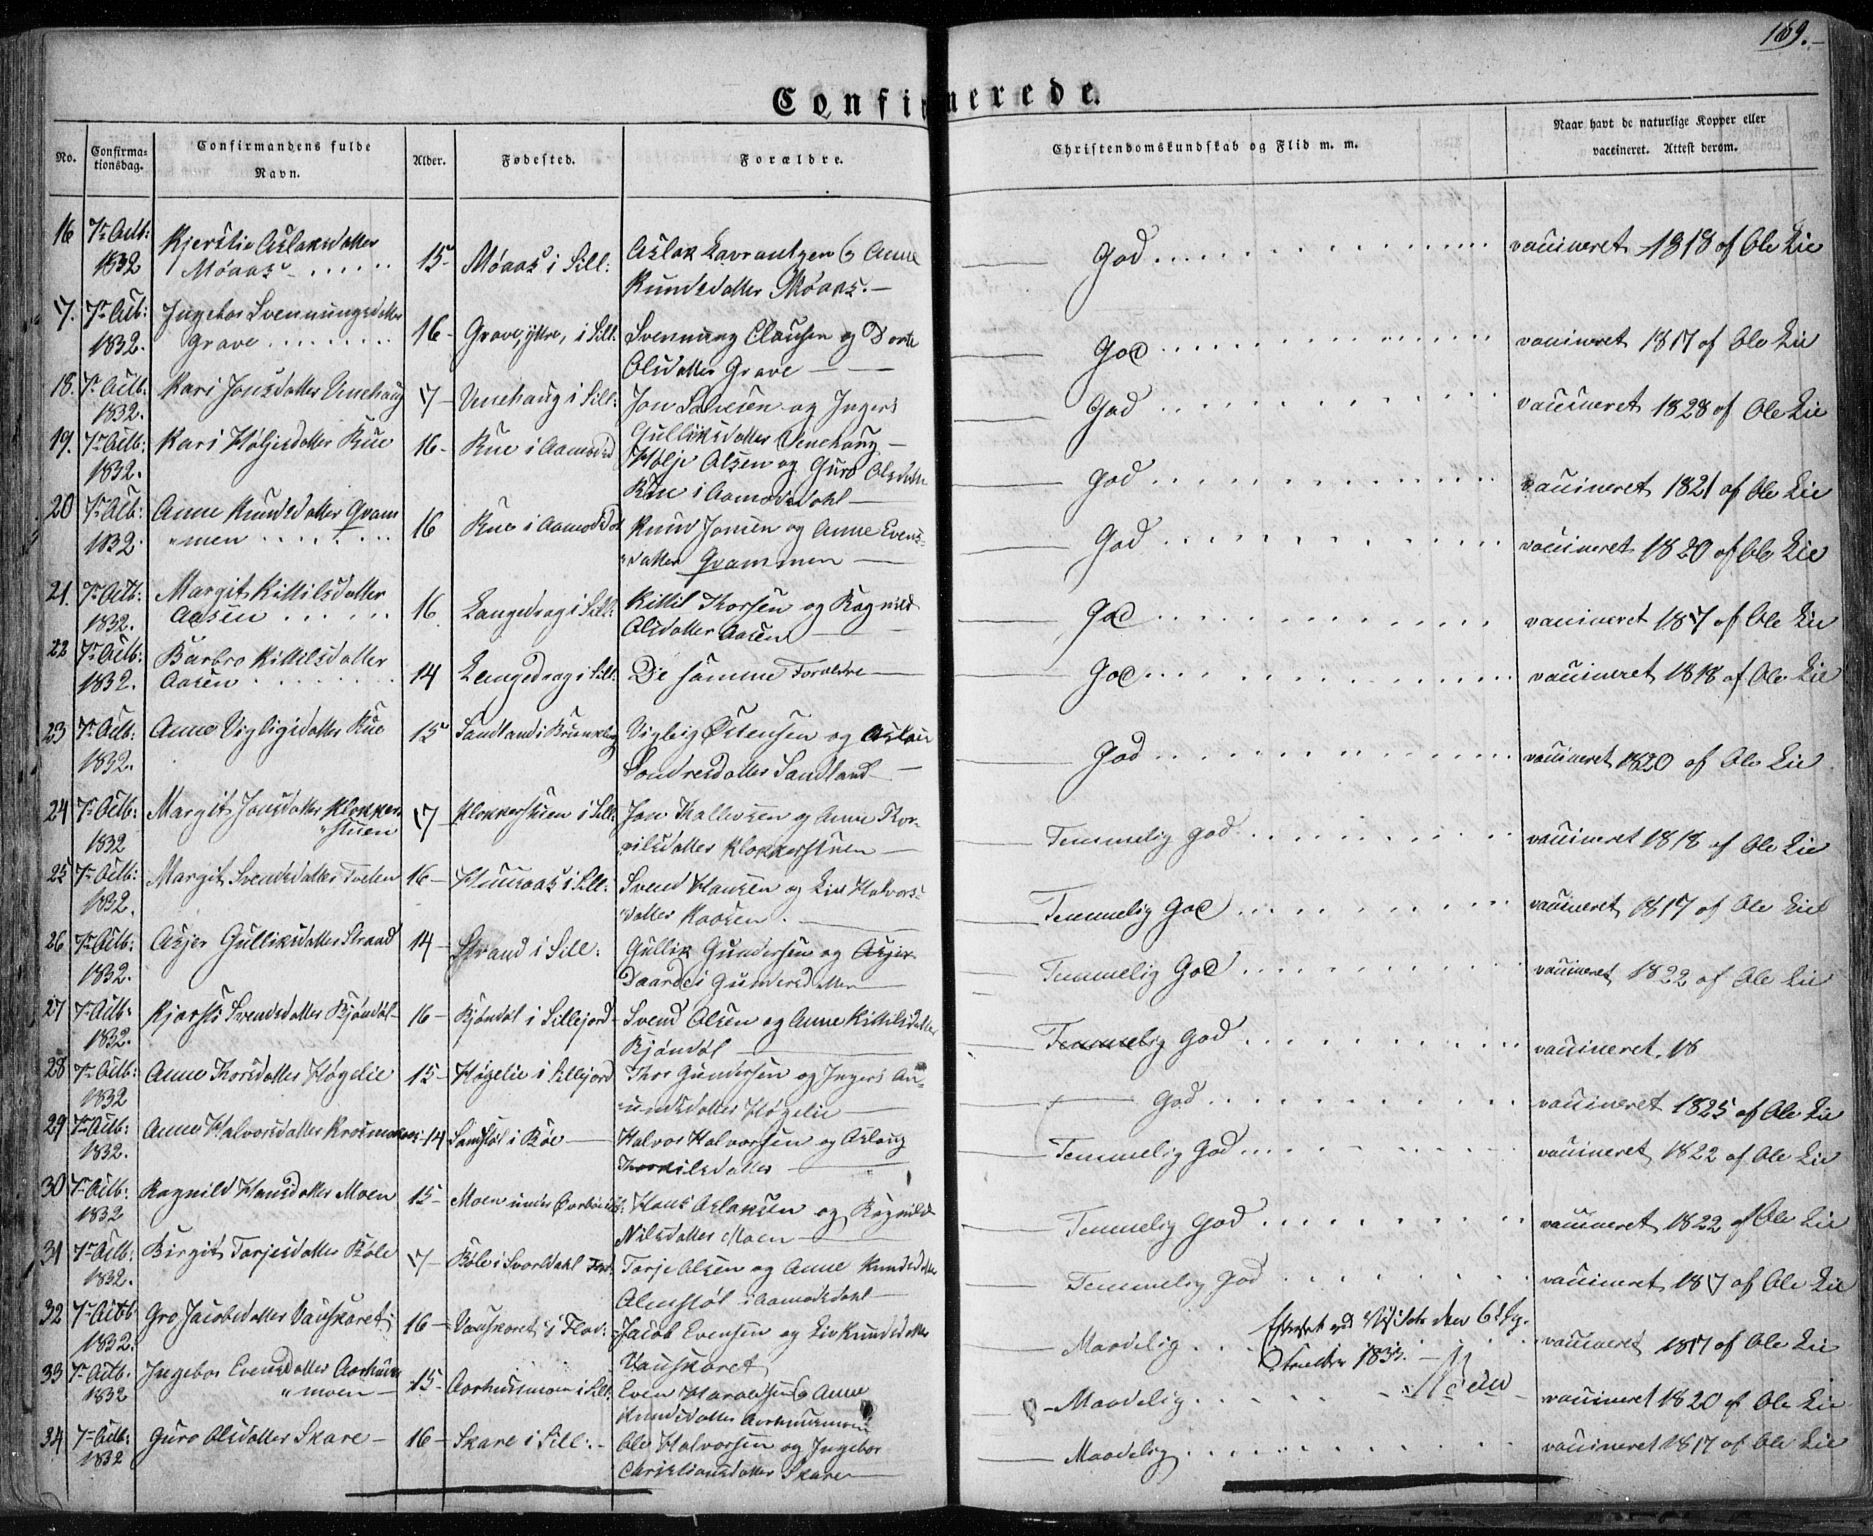 169.
Confirmerede.
No. Confirma-tionsdag. Confirmandens fulde Navn. Alder. Fødested. Forældre. Christendomskundskab og Flid m. m. Naar havt de naturlige Kopper eller vaccineret. Attest derom.
16 7de Octb: Kjerstie Aslaksdatter 15 Møaas i Sill: Aslak Lavrantzen og Anne God vaccineret 1818 af Ole Lie
1832 Møaas Knudsdatter Møaas.
17. 7de Octb: Ingebor Svennungsdatter 16 Grave, yttre, i Sill: Svennung Clausen og Dorte God vaccineret 1817 af Ole Lie
1832. Grave Olsdatter Grave
18. 7de Octb: Kari Jonsdatter Venehaug 17 Venehaug i Sill: Jon og Inger God vaccineret 1828 af Ole Lie
1832. Gulliksdatter Venehaug
19. 7de Octb: Kari Høljesdatter Rue 16 Rue i Aamodsd Hølje Olsen og Guro Olsdatter God vaccineret 1821 af Ole Lie
1832. Rue i Aamodsdahl
20 7de Octb: Anne Knudsdatter Qvam 16 Rue i Aamodsdal Knud Jonsen og Anne Evens- God vaccineret 1820 af Ole Lie
1832. "men datter Qvammen
21. 7de Octb: Margit Kittilsdatter 16 Langedrag i Sill: Kittil Thorsen og Ragnild God vaccineret 1817 af Ole Lie
1832. Aasen Olsdatter Aasen
22 7de Octb: Barbro Kittilsdatter 14 Langedrag i Sill: De samme Foreldre God vaccineret 1818 af Ole Lie
1832. Aasen
23 7de Octb: Anne Vigligsdatter Rue 15 Sandland i Vigleig Østensen og Aslau God vaccineret 1820 af Ole Lie
1832. Sondresdatter Sandland
24 7de Octb: Margit Jonsdatter Klokker 17 Klokkerstuen i Sill: Jon Hallvorsen og Anne Tor- Temmelig god vaccineret 1818 af Ole Lie
1832 "stuen kilsdatter Klokkerstuen
25 7de Octb: Margit Svendsdatter Tveten 16 i Sill: Svend Hansen og Liv Halvors- Temmelig God vaccineret 1817 af Ole Lie
1832. datter Kaasen.
26 7de Octb: Asjer Gulliksdatter Strand 14 Strand i Sill: Gullik Gundersen og Asjer Temmelig God vaccineret 1822 af Ole Lie
1832. Gundersdatter
27 7de Octb: Kjersti Svendsdatter Bjøndøl 16 Bjøndøl i Sillejord Svend Olsen og Anne Kittilsdatter Temmelig God vaccineret, 18
1832. Bjøndøl
28 7de Octb: Anne Thorsdatter Høgelie 15 Høgelie i Sillejord Thor Gundersen og Inger An- God vaccineret 1825 af Ole Lie
1832 undsdatter Høgelie
29 7de Octb: Anne Halvorsdatter 14 i Bøe Halvor Halvorsen og Aslaug Temmelig God vaccineret 1822 af Ole Lie
1832. Thorkilsdatter
30 7de Octb: Ragnild Hansdatter Moen 15 Moen under Hans Aslaksen og Ragnild Temmelig God vaccineret 1822 af Ole Lie
1832 Nilsdatter Moen
31 7de Octb: Birgit Tarjesdatter Bøle 17 Bøle i Svordahl Tarje Olsen og Anne Knudsdatter Temmelig God vaccineret 1817 af Ole Lie
1832. i Aamodsdahl
32 7de Octb Gro Jacobsdatter Vauskaret 16 Vauskaret i Flad: Jacob Evensen og Liv Knudsdatter Maadelig vaccineret 1817 af Ole Lie
1832. Vauskaret
Efterset ved Visitats den 6te
October 1833.
33 7de Octb. Ingebor Evensdatter Aarhuus 15 Aarhusmoen i Sill: Even Haraldsen og Anne Maadelig vaccineret 1820 af Ole Lie
1832 "moen Knudsdatter Aarhusmoen
34 7de Octb: Guro Olsdatter Skare 16 Skare i Sill: Ole Halvorsen og Ingebor Maadelig vaccineret 1817 af Ole Lie
1832 Christiansdatter Skare